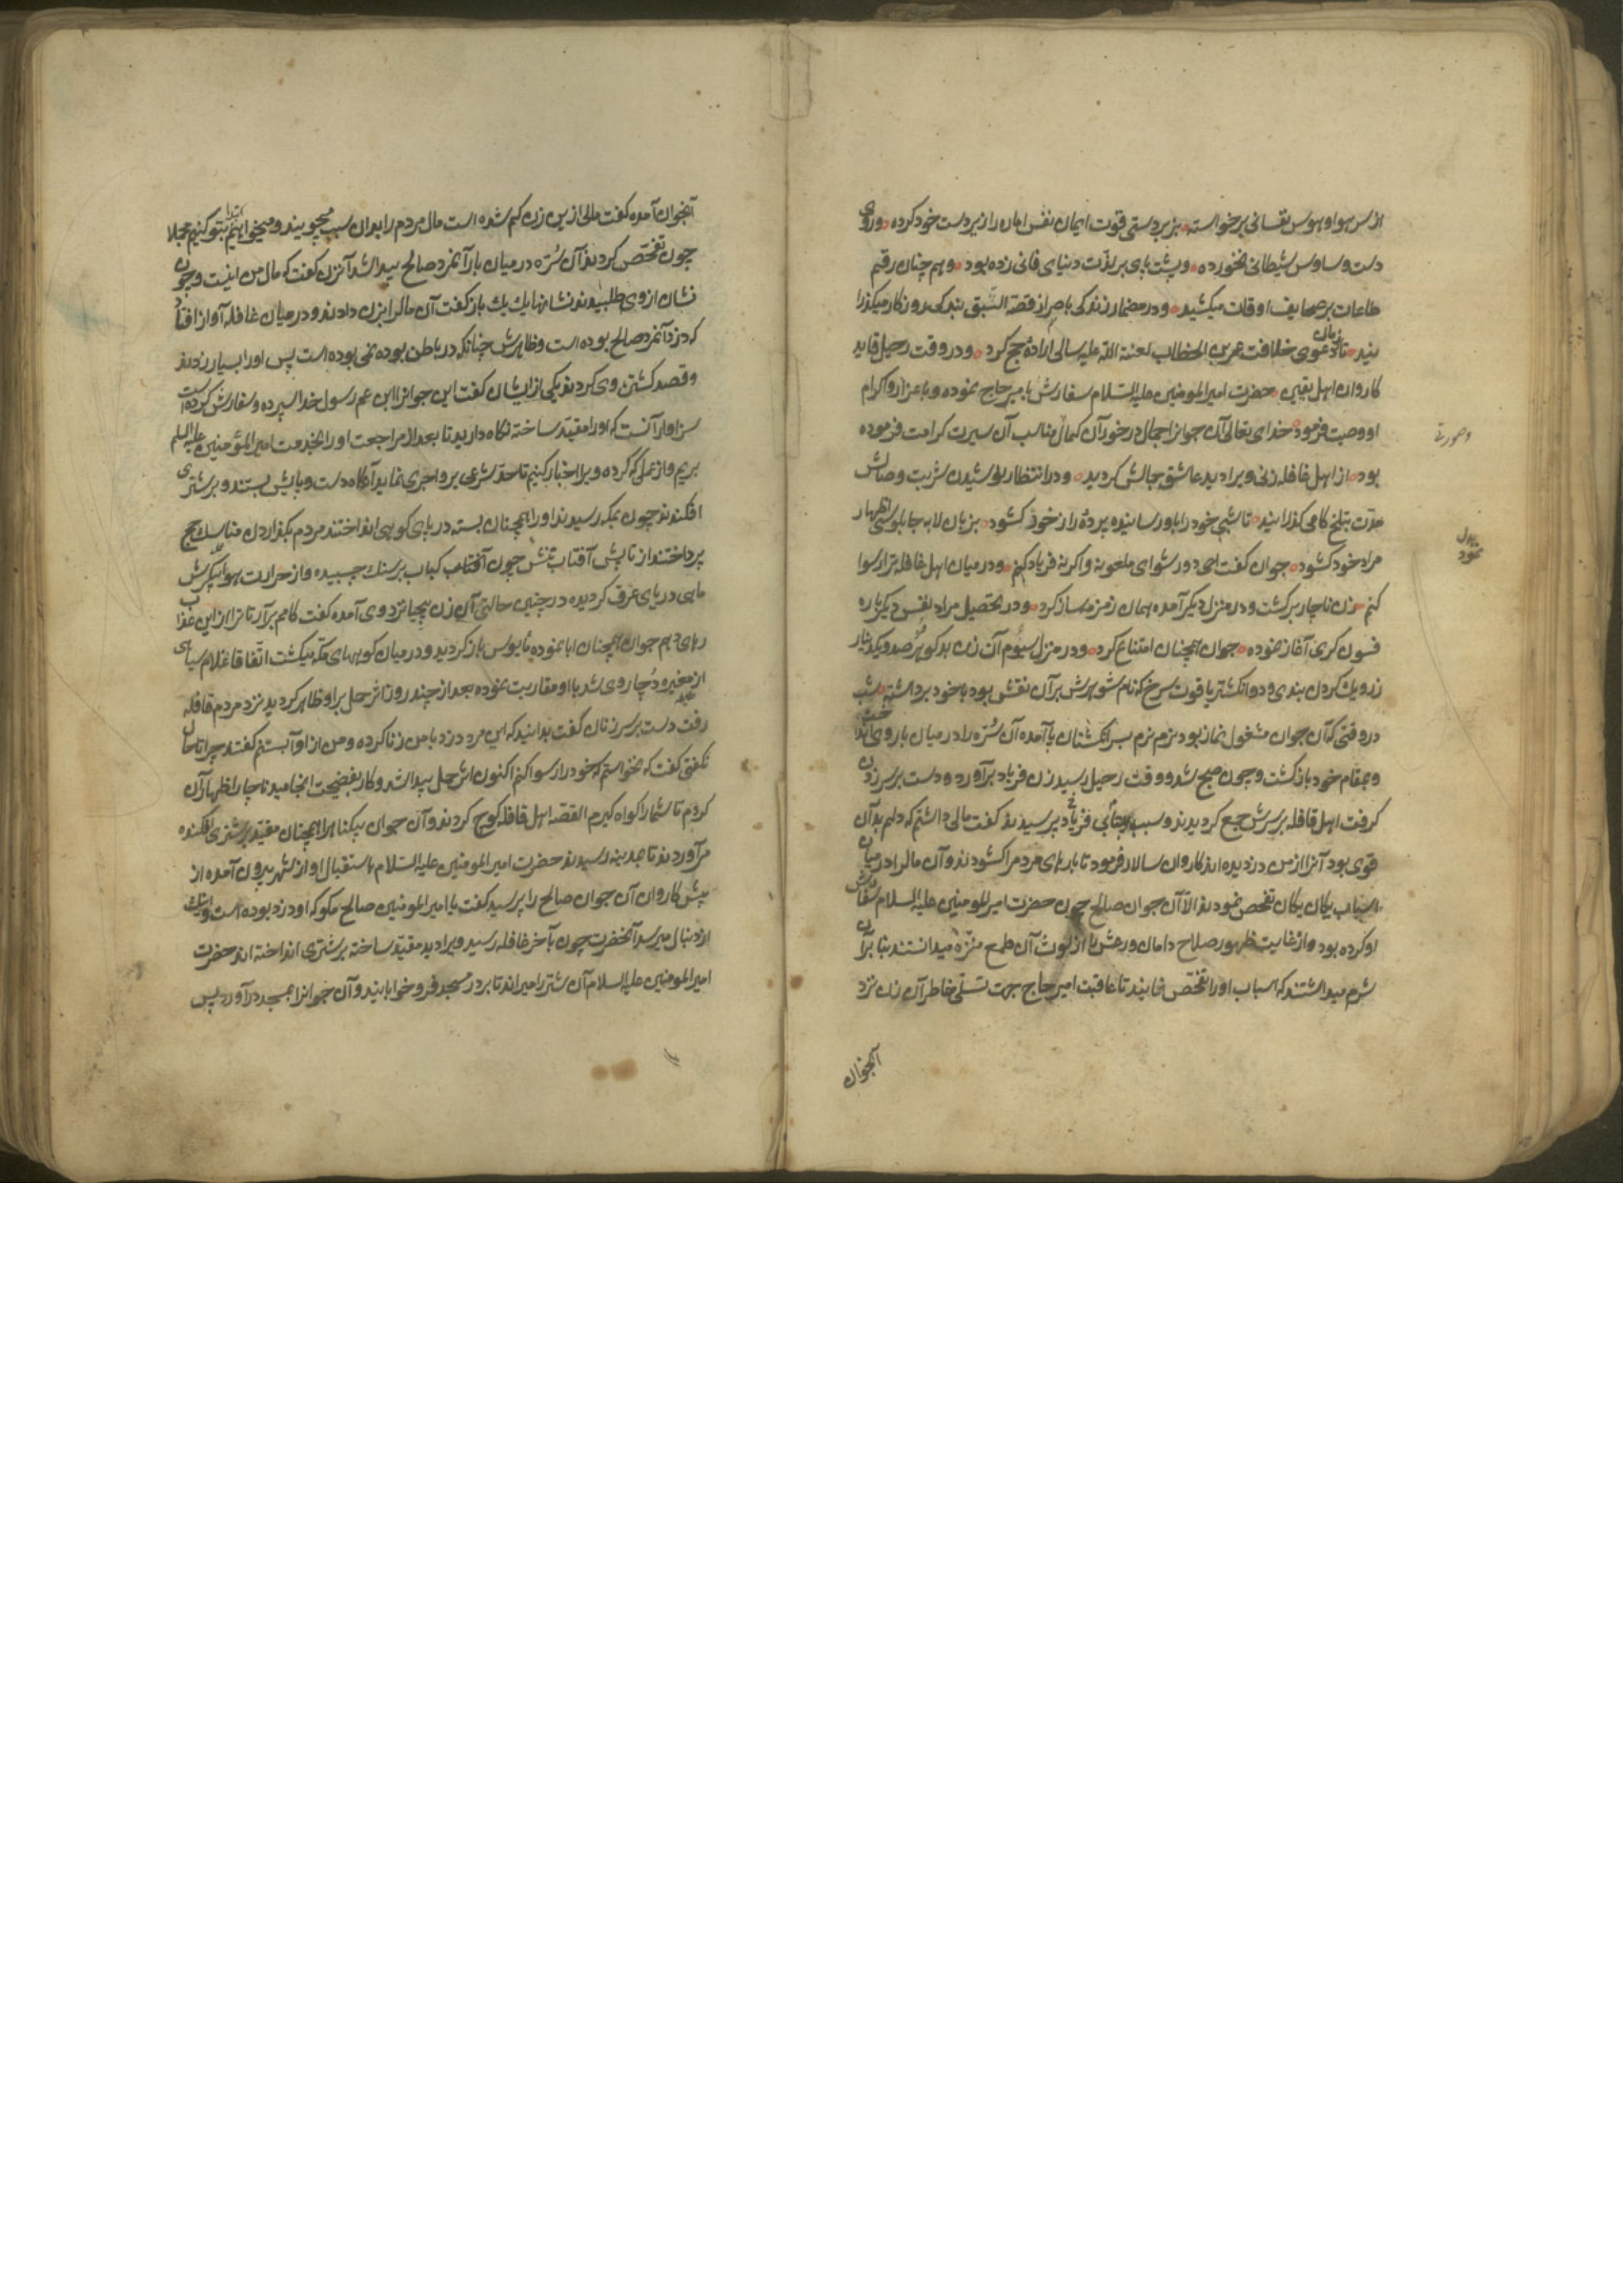 از سر هوا و هوس نفسانی برخواسته بزبردستی قوت ایمان نفس اماره را زیردست خود کرده و روی
دست وساوس شیطانی نخورده و پشت پای بر لذت دنیای فانی زده بود و هم چنان رقم
طاعات بر صحایف اوقات میکشید و در مضمار زندگی باحراز قصة السبق بندگی روزگار میگذرا
نید تا زمان دعوی خلافت عمر بن الخطاب لعنة الله علیه سالی ارادهٔ حج کرد و در وقت رحیل قاید
کاروان اهل یقین حضرت امیر المومنین علیه السلام سفارش با میر حاج نموده و باعزاز و اکرام
او وصیت فرمود خدای تعالی آن جوانرا جمال درخور آن کمال مناسب آن سیرت کرامت فرموده
وصورتی
بود از اهل قافله زنی ویرا دید عاشق جمالش گردید و در انتظار نوشیدن شربت وصالش
مدت بتلخ کامی گذرانید تا شبی خود را باو رسانیده پردهٔ راز خود گشود بزبان لابه چاپلوسی اظهار
مراد خود گشود جوان گفت ای دور شو ای ملعونه و اگر نه فریاد کنم و در میان اهل قافله ترا رسوا
نمود بدل
کنم زن ناچار برگشت و در منزل دیگر آمده همان زمزمه ساز کرد و در تحصیل مراد نفس دیگر باره
فسون گری آغاز نموده جوان همچنان امتناع کرد و در منزل سیوم آن زن بدگوهر صد و یک دینار
زر و یک گردن بندی و دو انگشتر یاقوت سرخ که نام شوهرش بر آن نقش بود با خود برداشته شب
در وقتی که آن جوان مشغول نماز بود نرم نرم بسر انگشتان پا آمده آن سُرّه را در میان بار وی
و بمقام خود بازگشت و چون صبح شد و وقت رحیل رسید زن فریاد برآورد و دست بر سر زدن
گرفت اهل قافله بر سرش جمع گردیدند و سبب فریاد پرسیدند گفت مالی داشتم که دلم بدان
قوی بود آنرا از من دزدیده اند کاروان سالار فرمود تا بارهای مردم را گشودند و آن مال را در میان
اسباب یکان یکان تفحص نمودند الا آن جوان صالح چون حضرت امیر المومنین علیه السلام سفارش
او کرده بود و از غایت ظهور صلاح دامان ورعش را از لوث آن طمع منزّه میدانستند بنا بر آن
شرم میداشتند که اسباب او را تفحص نمایند تا عاقبت امیر حاج بجهت تسلی خاطر آن زن نزد
آنجوان
آنجوان آمده گفت مالی از این زن گم شده است مال مردم را بدان سبب میجویند و میخواهیم ابتدا بتو کنیم مجملا
چون تفحص کردند آن سُرّه در میان بار آنمرد صالح پیدا شد آنزن گفت که مال من اینست و چون
نشان از وی طلبیدند نشانها یک یک باز گفت آن مال را بزن دادند و در میان قافله آوازه افتاد
که دزد آنمرد صالح بوده است و ظاهرش چنانکه در باطن بوده نمی بوده است پس او را بسیار زدند
و قصد کشتن وی کردند یکی از ایشان گفت این جوانرا ابن عم رسول خدا سپرده و سفارش کرده است
سزاوار آنست که او را مقید ساخته نگاه دارید تا بعد از مراجعت او را بخدمت امیر المؤمنین علیه السلم
بریم و از عملی که کرده ویرا اخبار کنیم تا حد شرعی بر و اجری نماید آنگاه دست و پایش بستند و بر شتری
افکندند چون بمکه رسیدند او را همچنان بسته در پای کوهی انداختند مردم بگذاردن مناسک حج
پرداختند از تابش آفتاب تنش چون کباب بر سنک چسبیده و از حرارت هوا پیکرش
ماهی دریای عرق گردیده در چنین حالتی آن زن بیحیا نزد وی آمده گفت کامم برآر تا ترا از این عذاب
رهای دهم جوان همچنان ابا نموده مأیوس بازگردید و در میان کوههای مکه میگشت اتفاقا غلام سیاهی
از مغیره دُچار وی شد با او مقاربت نموده بعد از چند روز اثر حمل بر او ظاهر گردید نزد مردم قافله
رفت دست بر سر زنان گفت بدانید که این مرد دزد با من زنا کرده و من از او آبستنم گفتند چرا تا حال
نگفتی گفت که نخواستم که خود را رسوا کنم اکنون اثر حمل پیدا شد و کار بفضیحت انجامید ناچار اظهار آن
کردم تا شما را گواه گیرم القصه اهل قافله کوچ کردند و آن جوان بیگناه را همچنان مقید بر شتری افکنده
می آوردند تا بمدینه رسیدند حضرت امیر المومنین علیه السلام باستقبال او از شهر بیرون آمده از
پیش کاروان آن جوان صالح را پرسید گفت یا امیر المومنین صالح مگو که او دزد بوده است و اینک
از دنبال میرسد آنحضرت چون بآخر قافله رسید ویرا دید مقید ساخته بر شتری انداخته اند حضرت
امیر المومنین علیه السلام آن شتر را میراند تا بر در مسجد فرو خوابانید و آن جوانرا بمسجد درآورد پس